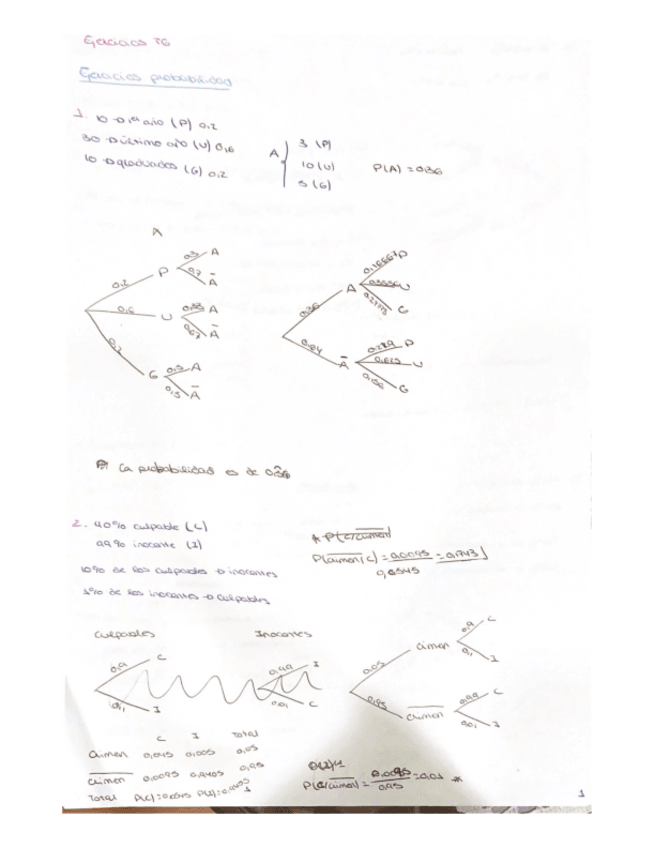 Ejercicios T6
Ejercicios probabilidad
1. 10 → 1er año (P) 0,2
30 → último año (U) 0,6
10 → graduados (G) 0,2
A
3 (P)
10 (U)
5 (G)
P(A) = 0,36
A
0,2 P 0,3 A
0,7 Ā
0,6 U 0,33 A
0,67 Ā
0,2 G 0,5 A
0,5 Ā
0,36 A 0,16667 P
U
G
0,64 Ā 0,219 P
0,625 U
0,156 G
La probabilidad es de 0,36
2. 40% culpable (C)
99% inocente (I)
10% de los culpables → inocentes
1% de los inocentes → culpables
P(crimen/C) = 0,0095 = 0,1743
0,0545
Culpables Inocentes
0,9 C
0,1 I
0,99 I
0,01 C
0,05 Crimen 0,9 C
0,1 I
0,95 Crimen 0,99 C
0,01 I
C I Total
Crimen 0,045 0,005 0,05
Crimen 0,0095 0,9405 0,95
Total P(C)=0,0545 P(I)=0,9455 1
P(C/crimen) = 0,0095 = 0,01 *
0,95
1